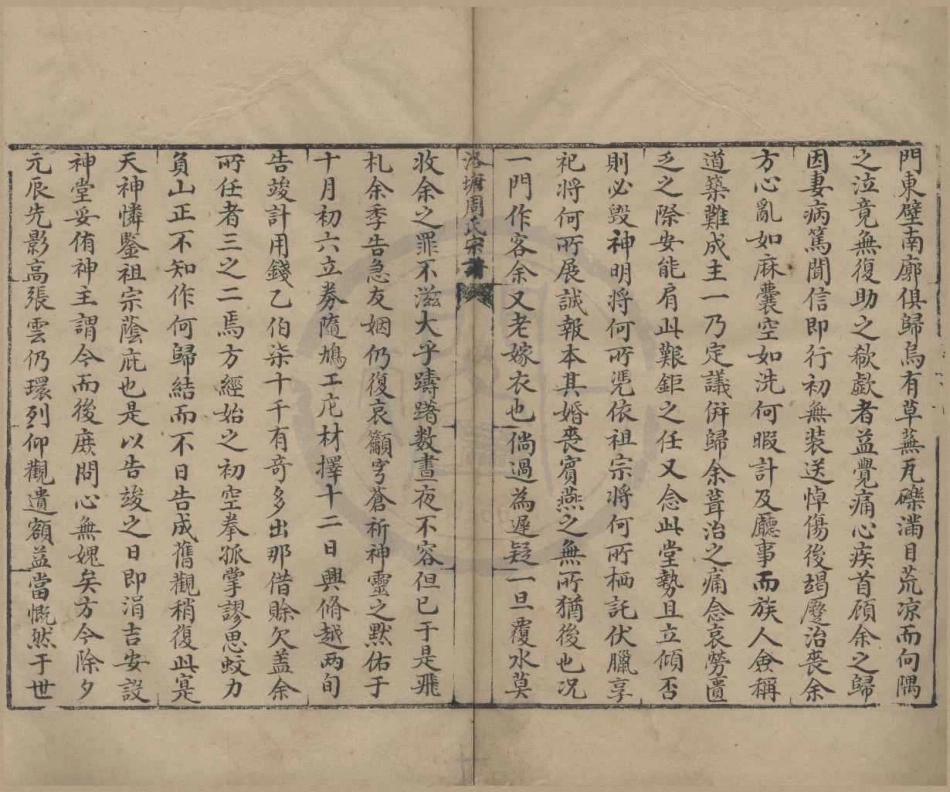 門東壁南廓俱歸烏有草蕪瓦礫滿目荒凉而向隅
之泣竟無復助之欷歔者益覺痛心疾首顧余之歸
因妻病篤聞信即行初無裝送悼傷後竭蹷治喪余
方心亂如麻囊空如洗何暇計及廳事而族人僉稱
道築難成主一乃定議併歸余葺治之痛念哀勞遺
乏之際安能肩此艱鉅之任又念此堂勢且立傾否
則必毀神明將何所凴依祖宗將何所栖託伏臘享
祀將何所展誠報本其婚喪賓燕之無所猶後也况
一門作客余又老嫁衣也倘過為遲疑一旦覆水莫
洛塘周氏宗
收余之罪不滋大乎躊躇数晝夜不容但已于是飛
札余季告急友姻仍復哀籲穹蒼祈神靈之默佑于
十月初六立券隨鳩工庀材擇十二日興脩越两旬
告竣計用錢乙伯柒十千有奇多出那借賒欠盖余
所任者三之二焉方經始之初空拳孤掌謬思蚊力
負山正不知作何歸結而不日告成舊觀稍復此寔
天神憐鑒祖宗蔭庇也是以告竣之日即涓吉安設
神堂妥侑神主謂今而後庶問心無媿矣方今除夕
元辰先影高張雲仍環列仰觀遺額益當慨然于世